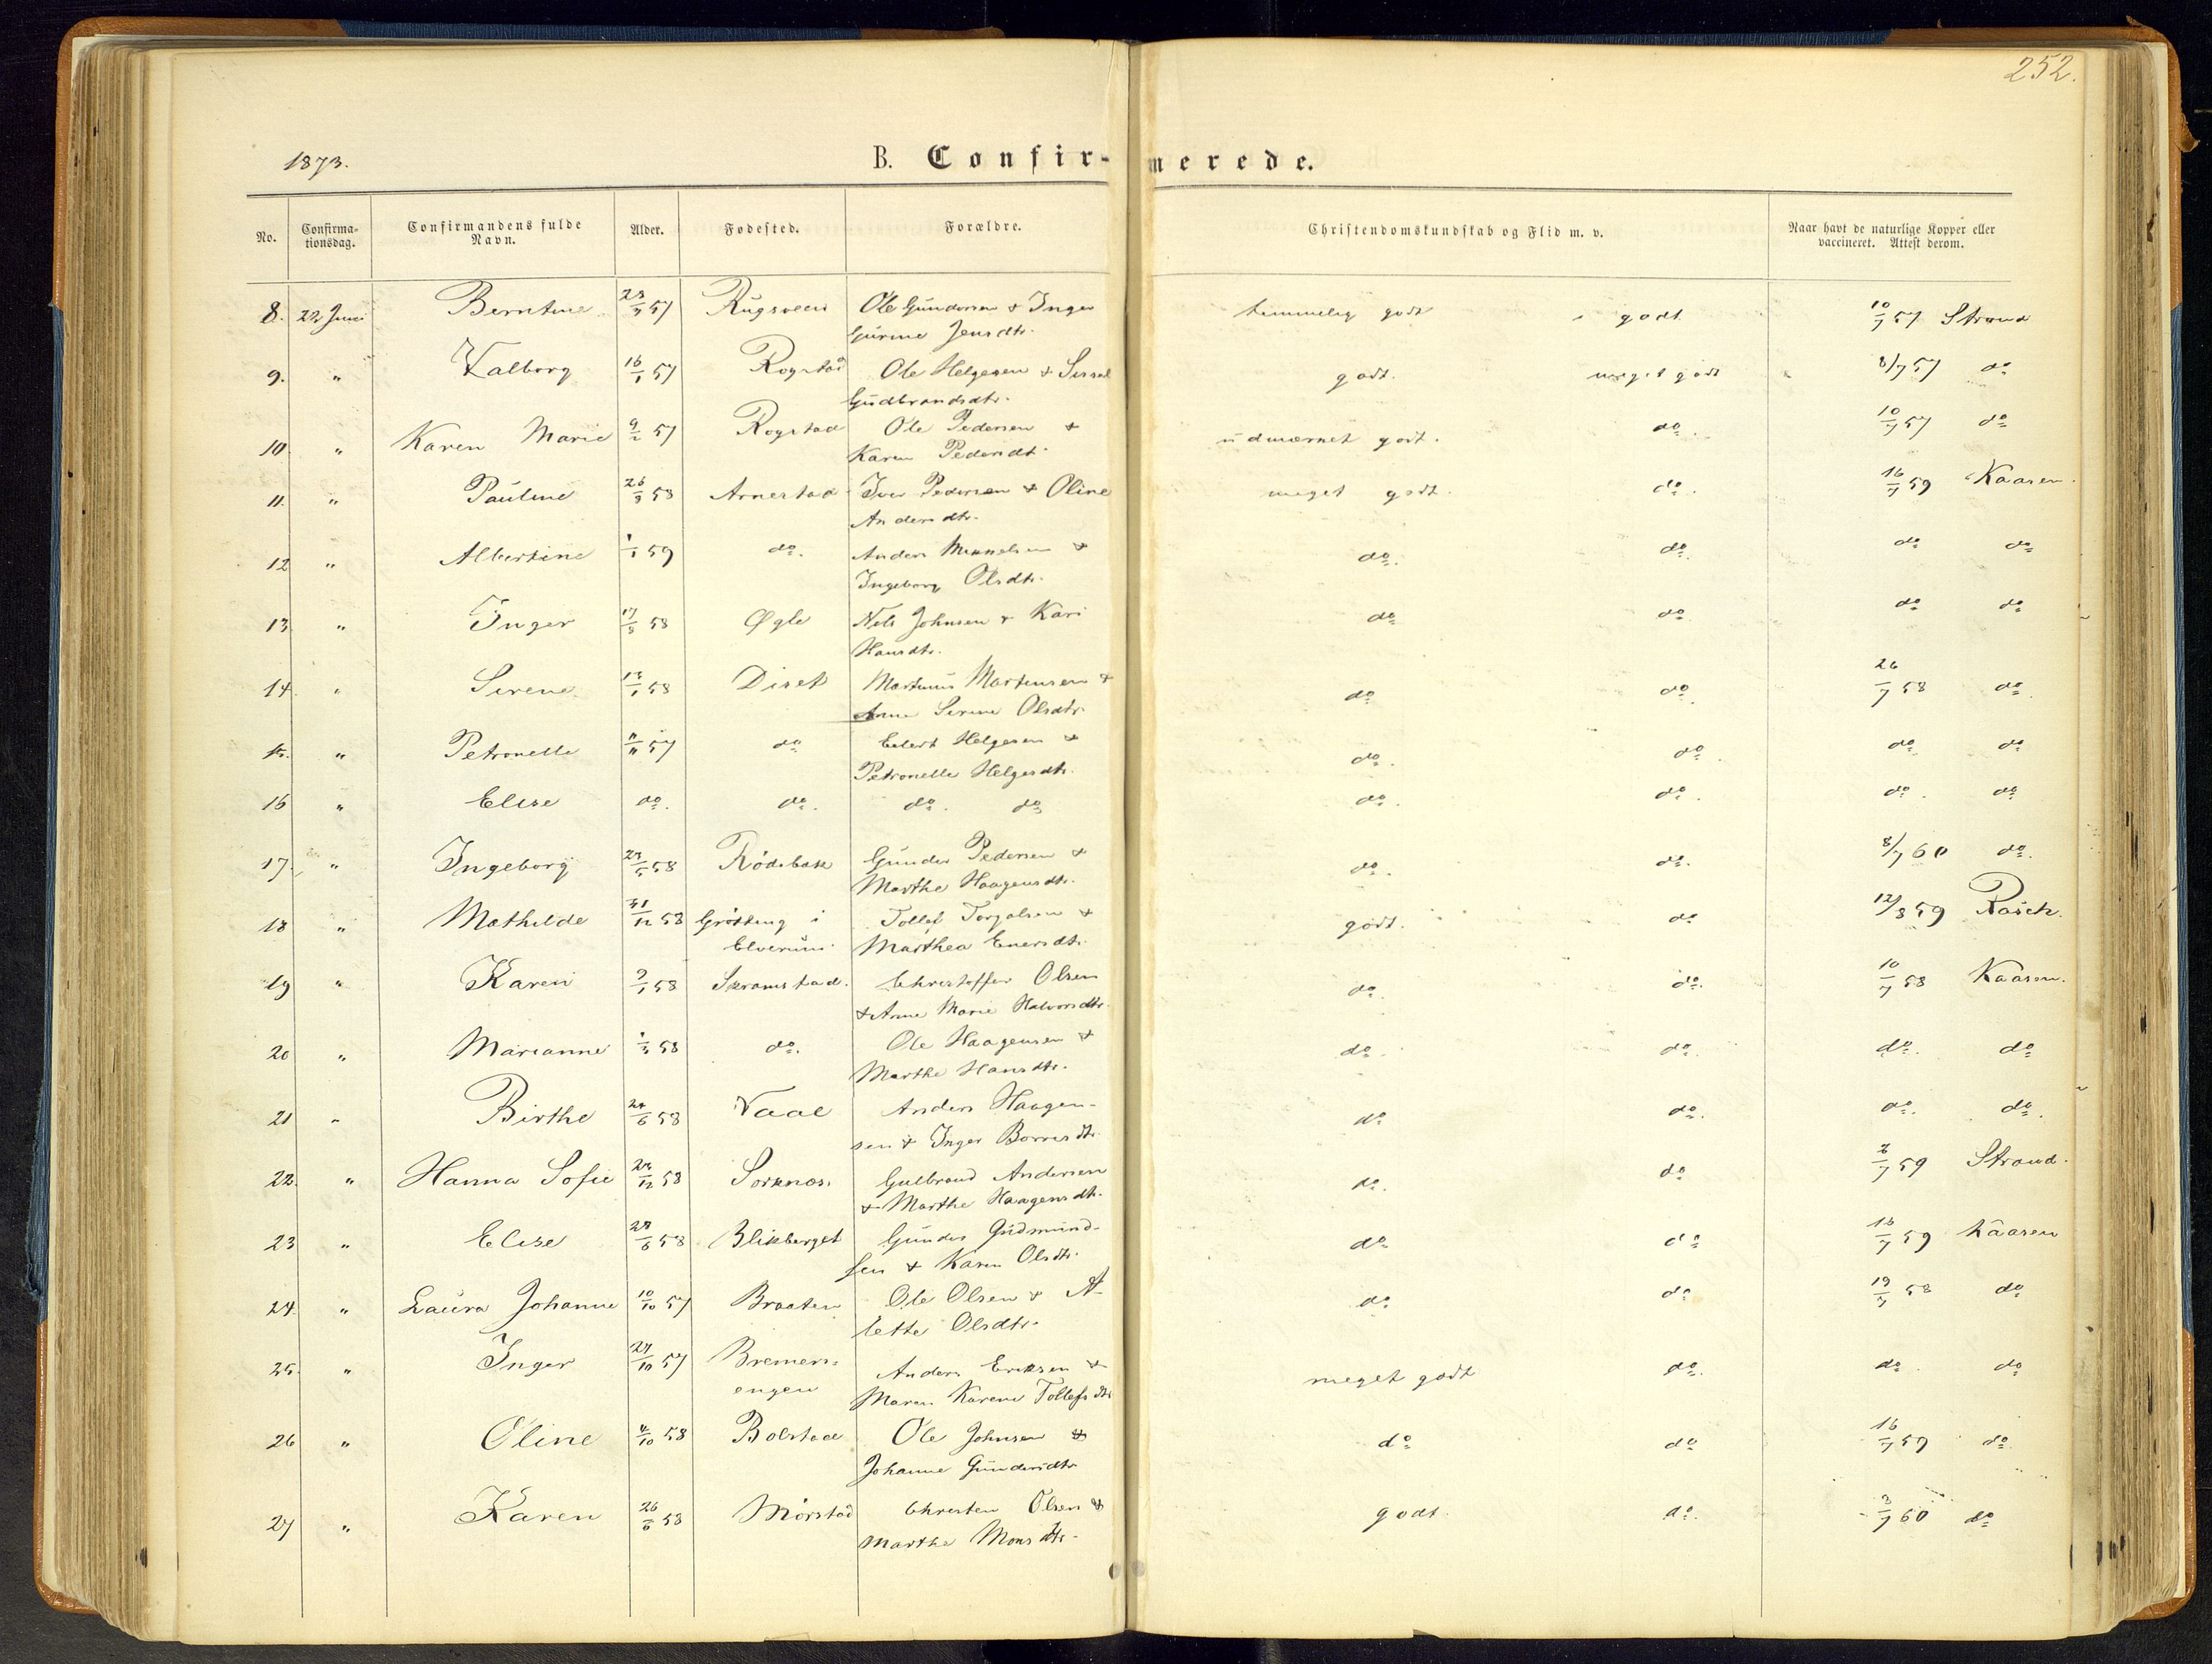 252.
1873.
B. Confir- merede.
No. Confirma-tionsdag. Confirmandens fulde Navn. Alder. Fødested. Forældre. Christendomskundskab og Flid m. v. Naar havt de naturlige Kopper eller vaccineret. Attest derom.
8. 22 Juni Berntine 57 Rugsveen Ole Gundersen & Inger temmelig godt godt 10/7 57 Strand
Gurine Jensdtr.
9. " Valborg 16/1 57 Rogstad Ole Helgesen & Sissel godt. meget godt 8/7 57 do
Gudbrandsdtr.
10. " Karen Marie 9/2 57 Rogstad Ole Pedersen & udmærket godt. do. 10/7 57 do
Karen Pedersdt.
11. " Pauline 26/3 58 Arnestad Iver Pedersen & Oline meget godt. do. 16/7 59 Kaasen.
Andersdtr.
12 " Albertine 1/1 59 do. Anders Mikkelsen & do. do. do do
Ingeborg Olsdtr.
13. " Inger 17/8 58 Øgle Nils Johnsen & Kari do do do do
Hansdtr.
14. " Sirene 13/1 58 Diset Martinus Martinsen & do do. 26/7 58 do.
Anne Sirine Olsdtr.
15. " Petronelle 11/11 57 do Eilert Helgesen & do. do. do do
Petronelle Helgesdtr.
16 " Elise do. do. do. do do. do. do. do
17. " Ingeborg 58 Rödsbak Gunder Pedersen & do. do. 8/7 60 do.
Marthe Haagensdtr.
18 " Mathilde 31/12 58 Gröttung i Tollef Torgalsen & godt. do 12/8 59 Rasch.
Elverum. Marthea Enersdtr.
19 " Karen 9/1 58 Skramstad. Christoffer Olsen do. do. 10/7 58 Kaasen.
& Anne Marie Halvorsdtr.
20 " Marianne 1/3 58 do. Ole Haagensen & do. do. do. do
Marthe Hansdtr.
21 " Birthe 24/6 58 Vaal Anders Haagen- do do. do. do.
sen & Inger Borresdtr.
22. " Hanna Sofie 58 Sorknes. Gulbrand Andersen do. do 59 Strand.
& Marthe Haagensdtr.
23 " Elise 28/6 58 Blikberget Gunder Gudmund- do do 16/7 59 Kaasen
sen & Karen Olsdtr.
24. " Laura Johanne 10/10 57 Braaten Ole Olsen & A- do do 19/7 58 do
lette Olsdtr.
25. " Inger 57 Bremers- Anders Eriksen & meget godt do. do. do
engen Maren Karine Tollefsdtr
26 " Oline 4/10 58 Bolstad Ole Johnsen & do do 16/7 59 do
Johanne Gundersdtr
27 " Karen 26/6 58 Mörstad Christen Olsen & godt. do. 3/7 60 do
Marthe Monsdtr.